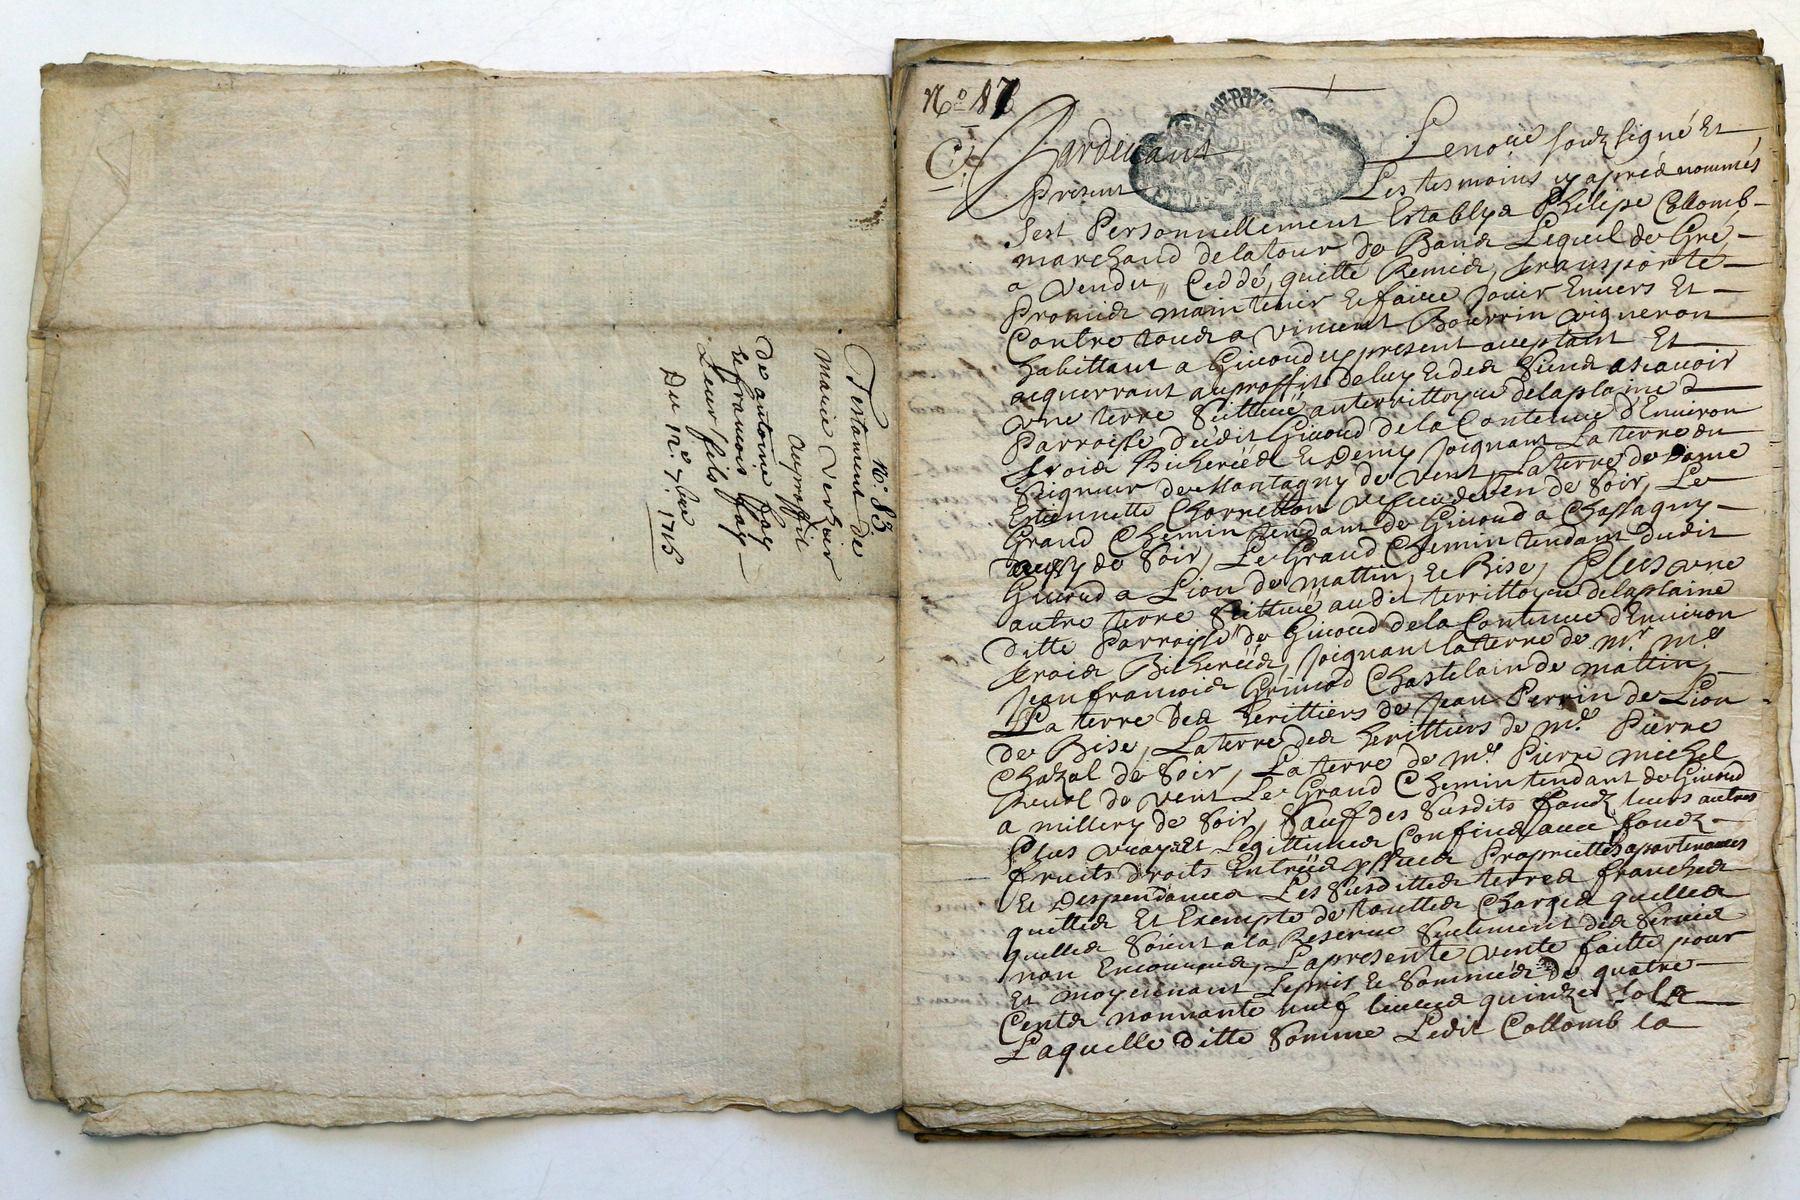 n.° 83
Testament de
marie Verzier
auproffit
de antoine fay
et francois fay
Leur fils
Du 12.e 7bre 1715
No 87
Pardevant Le no.re soubsigné Et
Present Les tesmoins cy apréd nommés
Sest Personnellement Establyd Philipe Collomb
marchand de la tour de Band Lequel de Gré
a vendu, Ceddé, quitté Remid, transporté
Promid maintenir Et faire Jouir Envers Et
Contre toud a vincent Bourrin vigneron
habittant a Givord cy present acceptant Et
acquerrant auproffit de luy Et ded Siend ascavoir
une terre Scittuée au territtoyre de la plaine
Parroisse dudit Givord de la Contenue d'Environ
troid Bicheréed Et Demy Joignant La terre du
Seigneur de Montagny de Vent, La terre de Dame
Estiennette Charretton de Soir, Le
Grand Chemin tendant de Givord a Chassagny
aussy de Soir, Le Grand Chemin tendant dudit
Givord a Lion de mattin, Et Bise, Plus une
autre terre Scittuée audit territtoyre de la plaine
ditte Parroisse de Givord de la Contenue d'Environ
troid Bicheréed, Joignant la terre de mr. me.
Jean francoid Grimod Chastelain de mattin,
La terre ded herittiers de Jean Perrin de Lion
de Bise, La terre ded herittiers de me. Pierre
Chazal de Soir, La terre de me. Pierre michel
de Vent Le Grand Chemin tendant de Givord
a millery de Soir, Sauf des Susdits fondz leurs autres
Plus vrayes Legittimed Confind avec fondz
fruits droits Entréed yssued Propriettés apartenances
Et Despendanced Les Susditted terred franched
quitted Et Exempte de toutted Charged quelled
quelled Soient a la Reserve Seulement ded Servid
non Encourrud, La presente vente faitte pour
Et moyennant Le prix Et Sommed de quatre
Centd nonnante neuf livred quinze Sols
Laquelle ditte Somme Ledit Collomb la